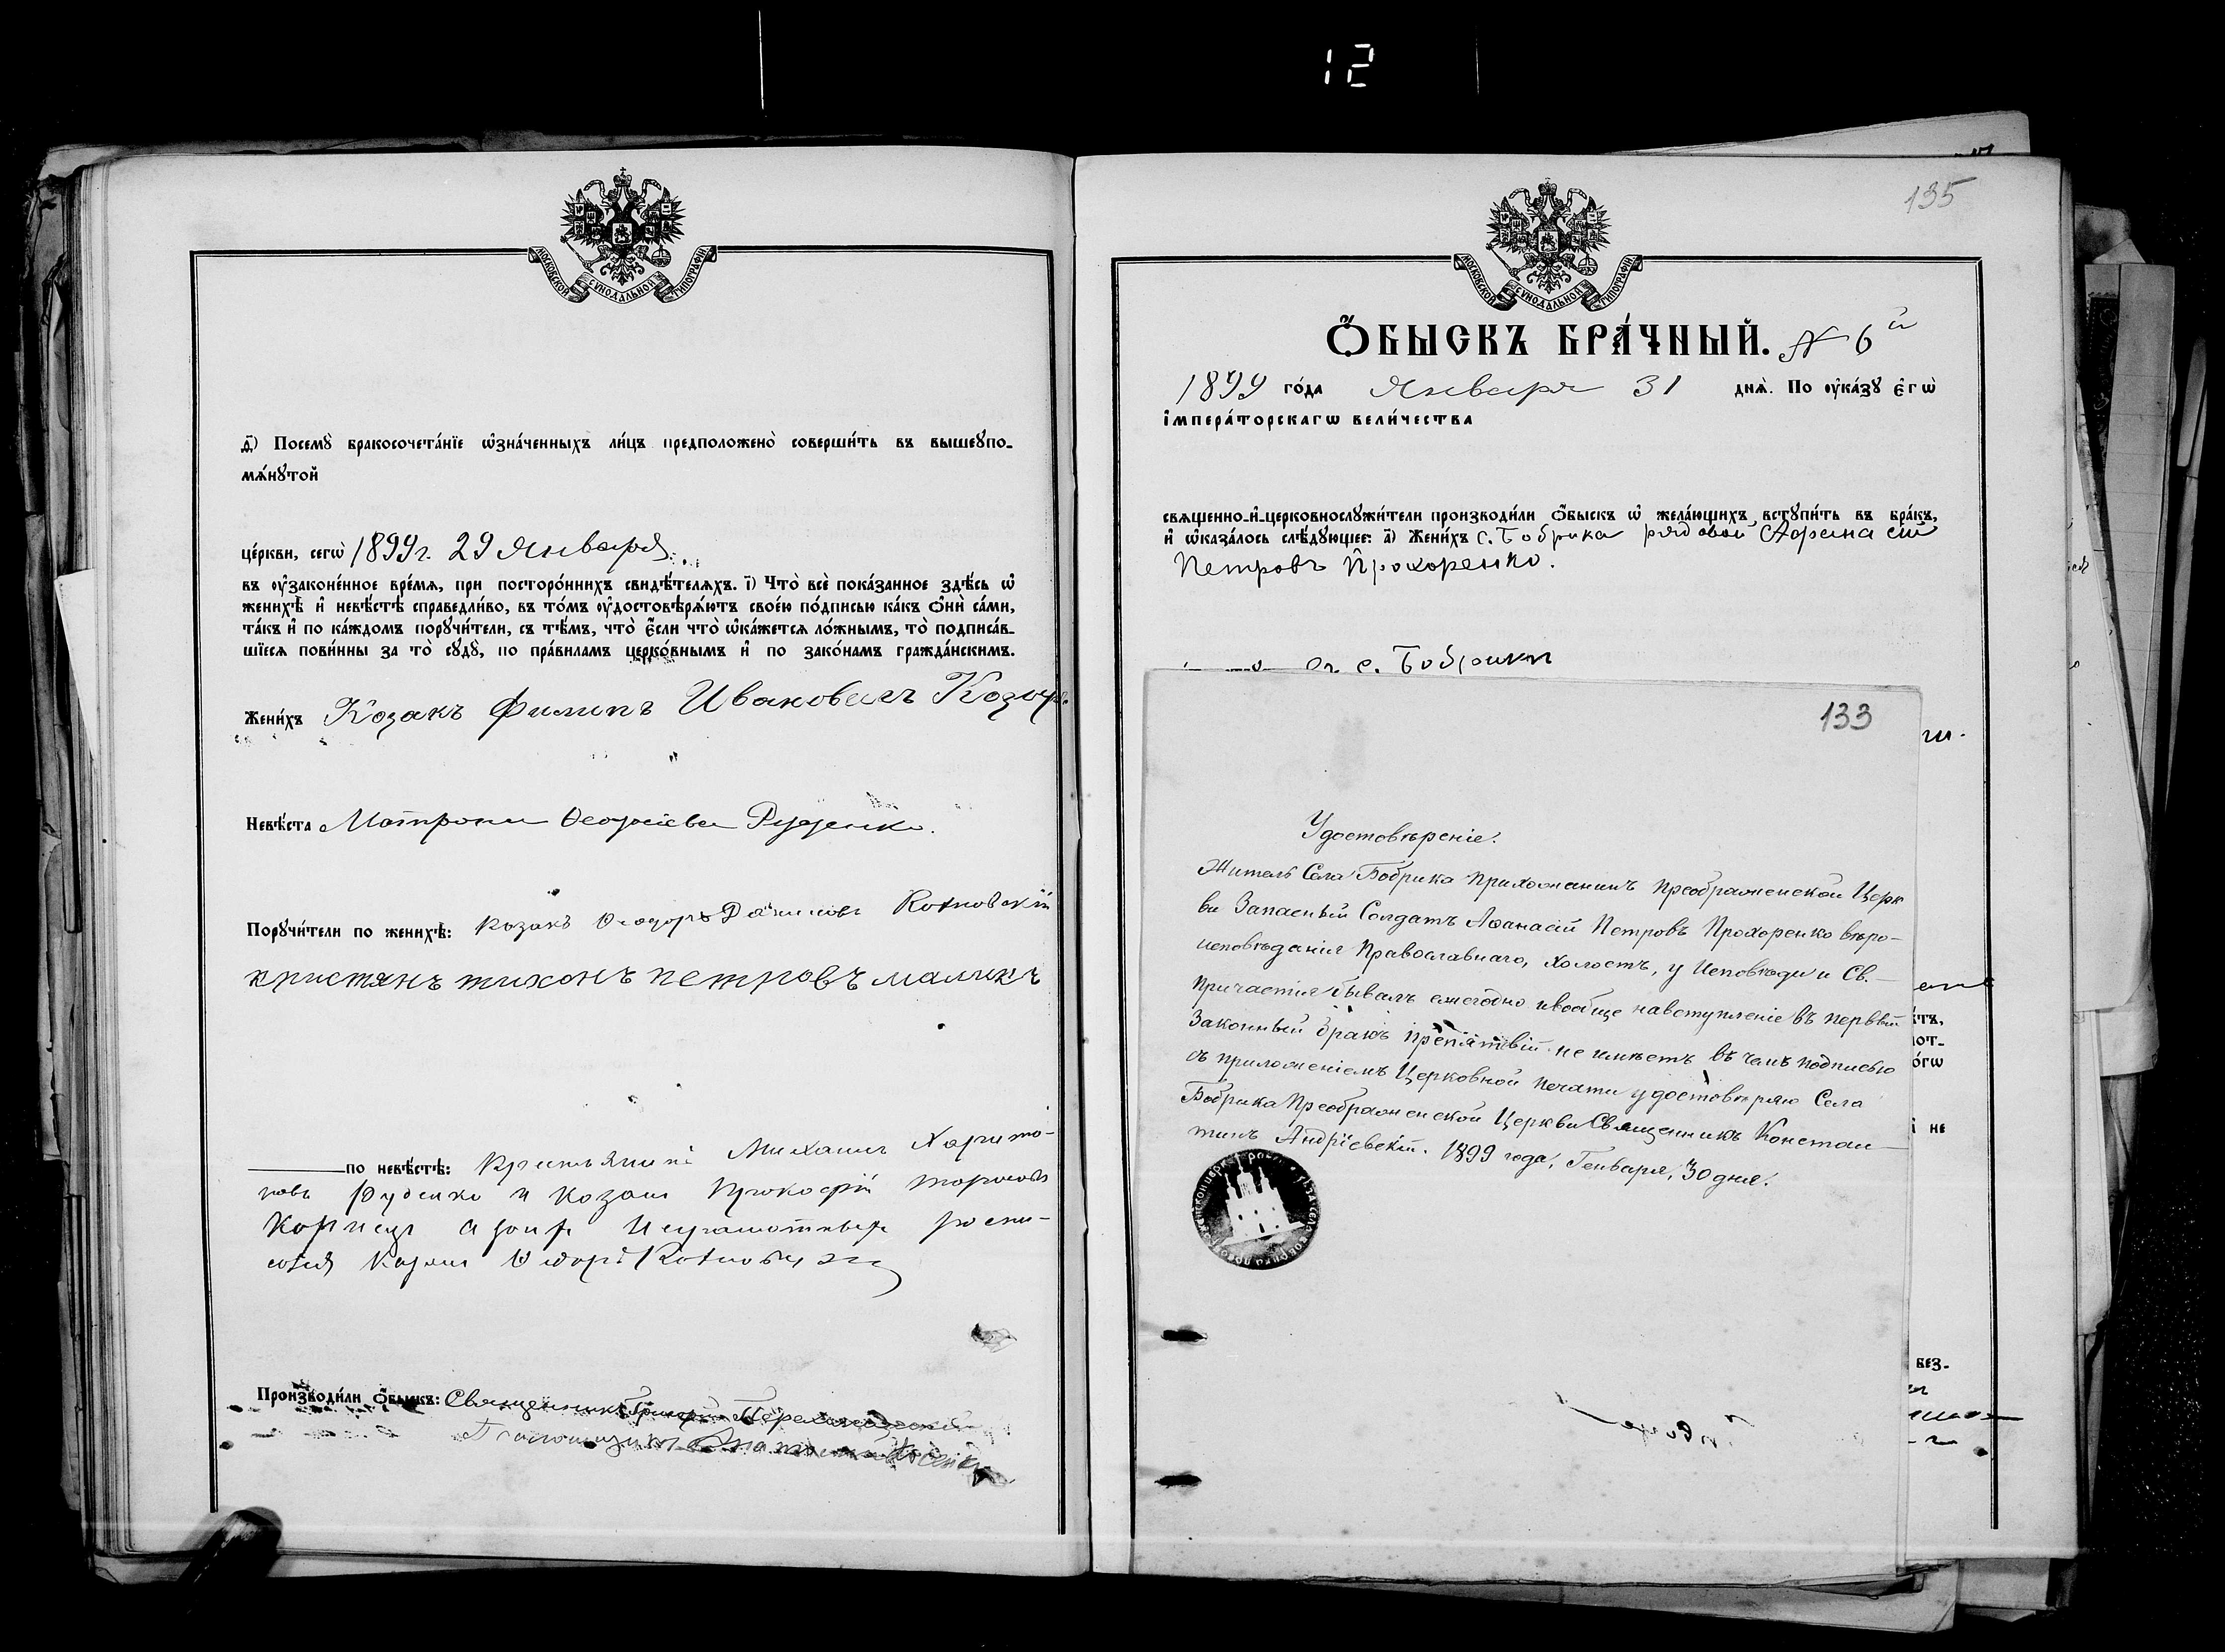 12
МОСКОВСКОЙ СѴНОДАЛЬНОЙ ТИПОГРАФІИ.
ѳ҃) Посемꙋ̀ бракосочета́нїе ѡ҆зна́ченныхъ ли́цъ предположено̀ соверши́ть въ вышеꙋпо-
мѧ́нꙋтой
це́ркви, сегѡ̀ 1899 г. 29 Января
въ ᲂу҆законе́нное вре́мѧ, при посторо́ннихъ свидѣ́телѧхъ. і҃) Что̀ всѐ пока́занное здѣ́сь ѡ҆
женихѣ̀ и҆ невѣ́стѣ справедли́во, въ то́мъ ᲂу҆достовѣрѧ́ютъ свое́ю по́дписью ка́къ ѻ҆нѝ са́ми,
та́къ и҆ по ка́ждомъ порꙋчи́тели, съ тѣ́мъ, что̀ є҆́сли что̀ ѡ҆ка́жетсѧ ло́жнымъ, то̀ подписа́в-
шїесѧ пови́нны за то̀ сꙋдꙋ̀, по пра́виламъ церко́внымъ и҆ по зако́намъ гражда́нскимъ.
Жени́хъ Козакъ Филипъ Ивановичъ
Невѣ́ста Матрона Ѳеодосіева Руденко.
Порꙋчи́тели по женихѣ̀: Козакъ Ѳеодоръ Даниловъ
кристянъ тихонъ петровъ маликъ
по невѣ́стѣ: Михаилъ Харито-
новъ Руденко и Козакъ Прокофій
Неграмотные роспи-
Козакъ Ѳедоръ
Производи́ли ѻ҆́быскъ: Священникъ Григорій
МОСКОВСКОЙ СѴНОДАЛЬНОЙ ТИПОГРАФІИ.
135
Ѻ҆́БЫСКЪ БРА́ЧНЫЙ. № 6й
1899 го́да Января 31 днѧ̀. По ᲂу҆ка́зꙋ є҆гѡ̀
і҆мпера́торскагѡ вели́чества
свѧщенно-и҆-церковнослꙋжи́тели производи́ли ѻ҆́быскъ ѡ҆ жела́ющихъ встꙋпи́ть въ бра́къ,
и҆ ѡ҆каза́лось слѣ́дꙋющее: а҃) Жени́хъ с. Бобрика рядовой Афанасій
Петровъ Прохоренко.
с. Бобрики
133
Удостовѣреніе.
Житель Села Бобрика прихожанинъ Преображенской Церк
ви Запасный Солдатъ Аѳанасій Петровъ Прохоренко вѣро-
исповѣданія Православнаго, холостъ, у Исповѣди и Св.
Причастія бывалъ ежегодно и вообще на вступленіе въ первый
Законный бракъ препятствій не имѣетъ въ чемъ подписью
съ приложеніемъ Церковной печати удостовѣряю Села
Бобрика Преображенской Церкви Священникъ Констан-
тинъ Андріевскій. 1899 года, Генваря, 30 дня.